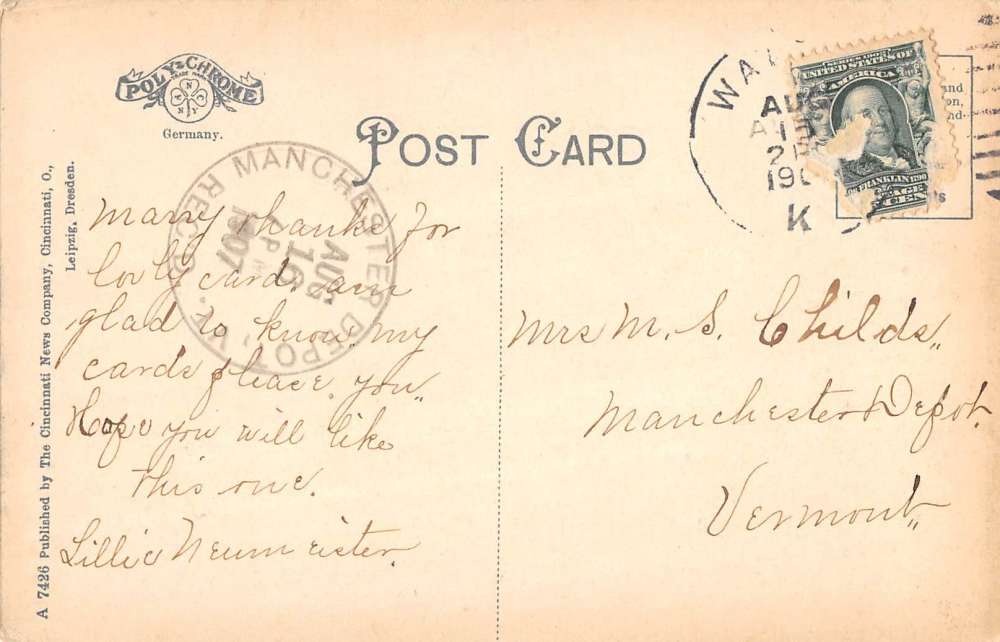 POLY-CHROME
TRADE MARK
Germany.
POST CARD
A 7426 Published by The Cincinnati News Company, Cincinnati, O.,
Leipzig, Dresden.
MANCHESTER DEPOT, VT.
REC'D.
AUG
16
PM
1907
WA
AUG
15
2
190
K
SERIES 1902
UNITED STATES OF
AMERICA
FRANKLIN
Many thanks for
lovly card, am
glad to know my
cards please you"
Hope you will like
this one.
Lillie Neumeister.
Mrs M. S. Childs,,
Manchester Depot,
Vermont,,